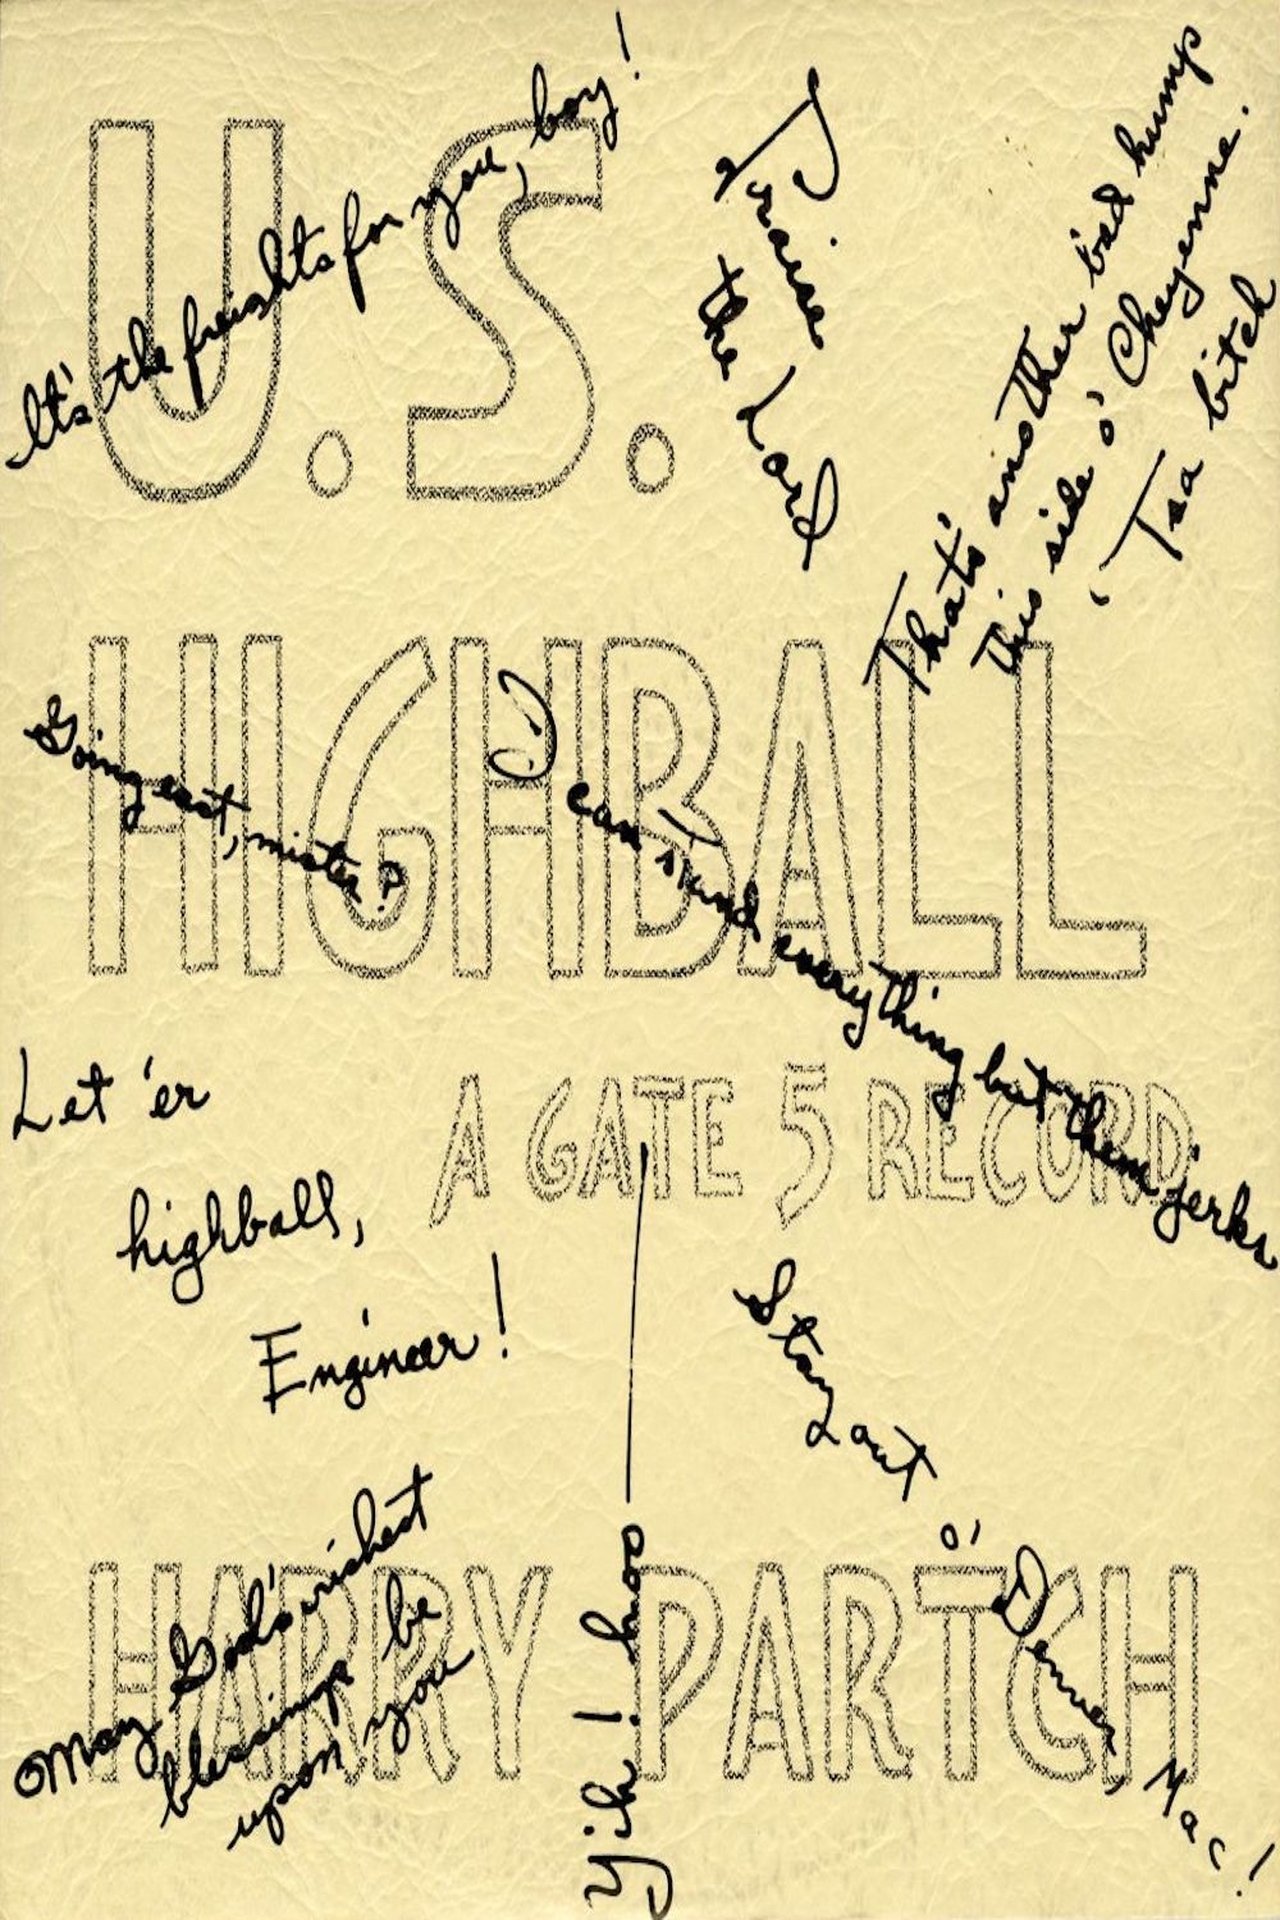 It's the freights for you, boy!
Praise
the Lord
That's another bad hump
this side o' Cheyenne.
'Tsa bitch
U.S.
HIGHBALL
Going east, mister?
I can stand everything but them jerks
A GATE 5 RECORD
Let 'er
highball,
Engineer!
Stay out o' Denver, Mac!
HARRY PARTCH
May God's richest
blessings be
upon you
Yih! hoo